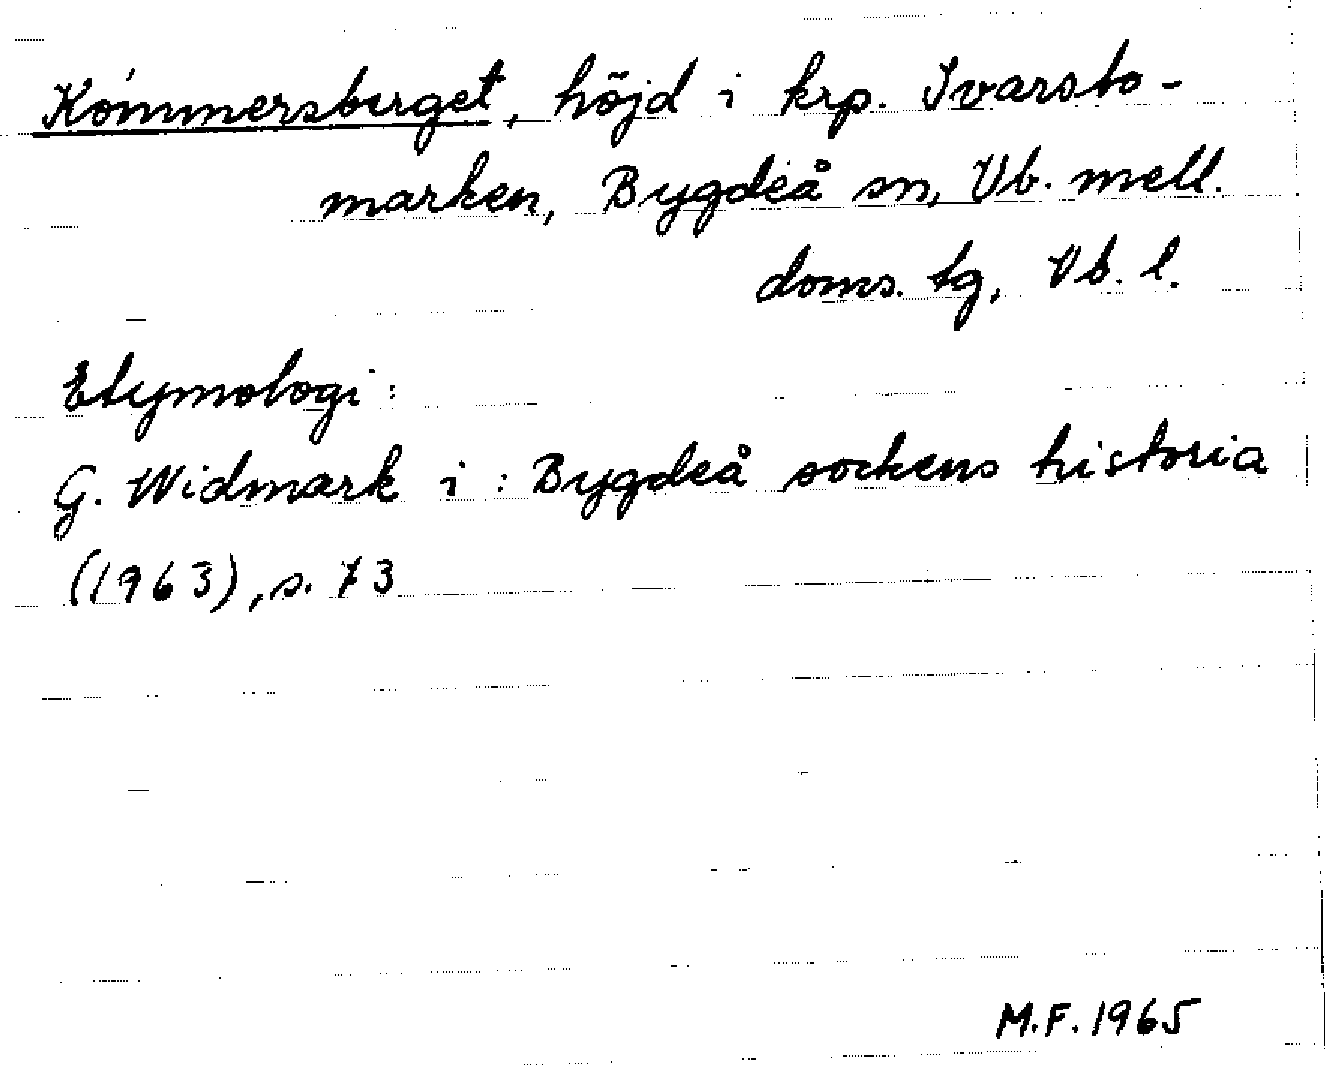 Kómmersberget, höjd i krp. Ivarsbo-
marken, Bygdeå sn, Vb. mell.
doms. tg, Vb. l.
Etymologi:
G. Widmark i: Bygdeå sockens historia
(1963), s. 73
M.F. 1965